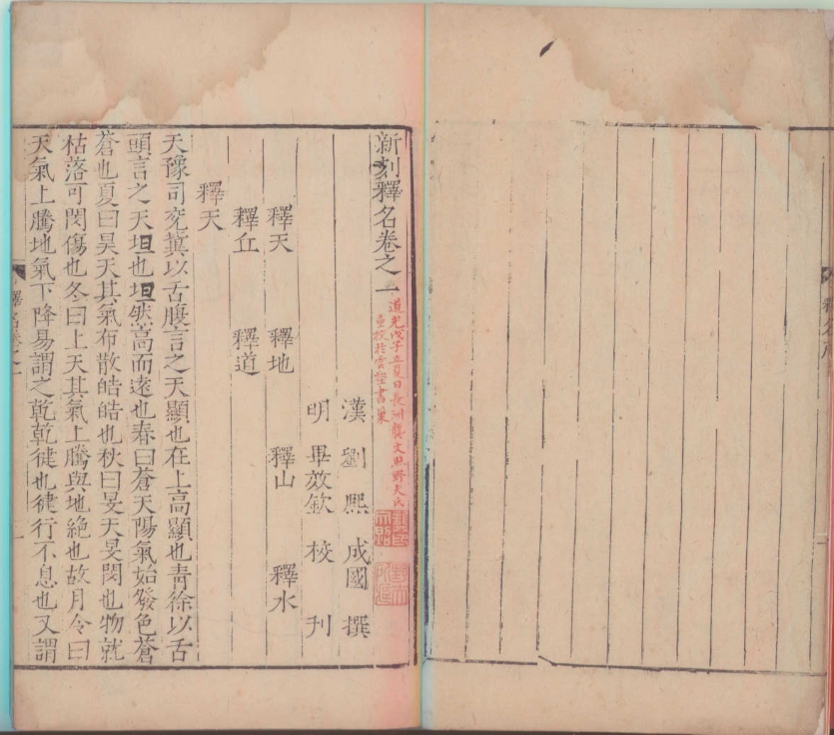 新刻釋名卷之一
道光戊子立夏日長洲龔文照野夫氏
重校於雲壑書巢
漢 劉 熙 成國 撰
明 畢效欽 校 刊
釋天 釋地 釋山 釋水
釋丘 釋道
釋天
天豫司兖冀以舌腹言之天顯也在上高顯也青徐以舌
頭言之天坦也坦然高而遠也春曰蒼天陽氣始發色蒼
蒼也夏曰昊天其氣布散皓皓也秋曰旻天旻閔也物就
枯落可閔傷也冬曰上天其氣上騰與地絶也故月令曰
天氣上騰地氣下降易謂之乾乾徤也徤行不息也又謂
釋名卷之一
一